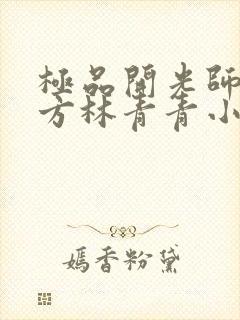 極品開光師
方林青青小
嫣香粉黛